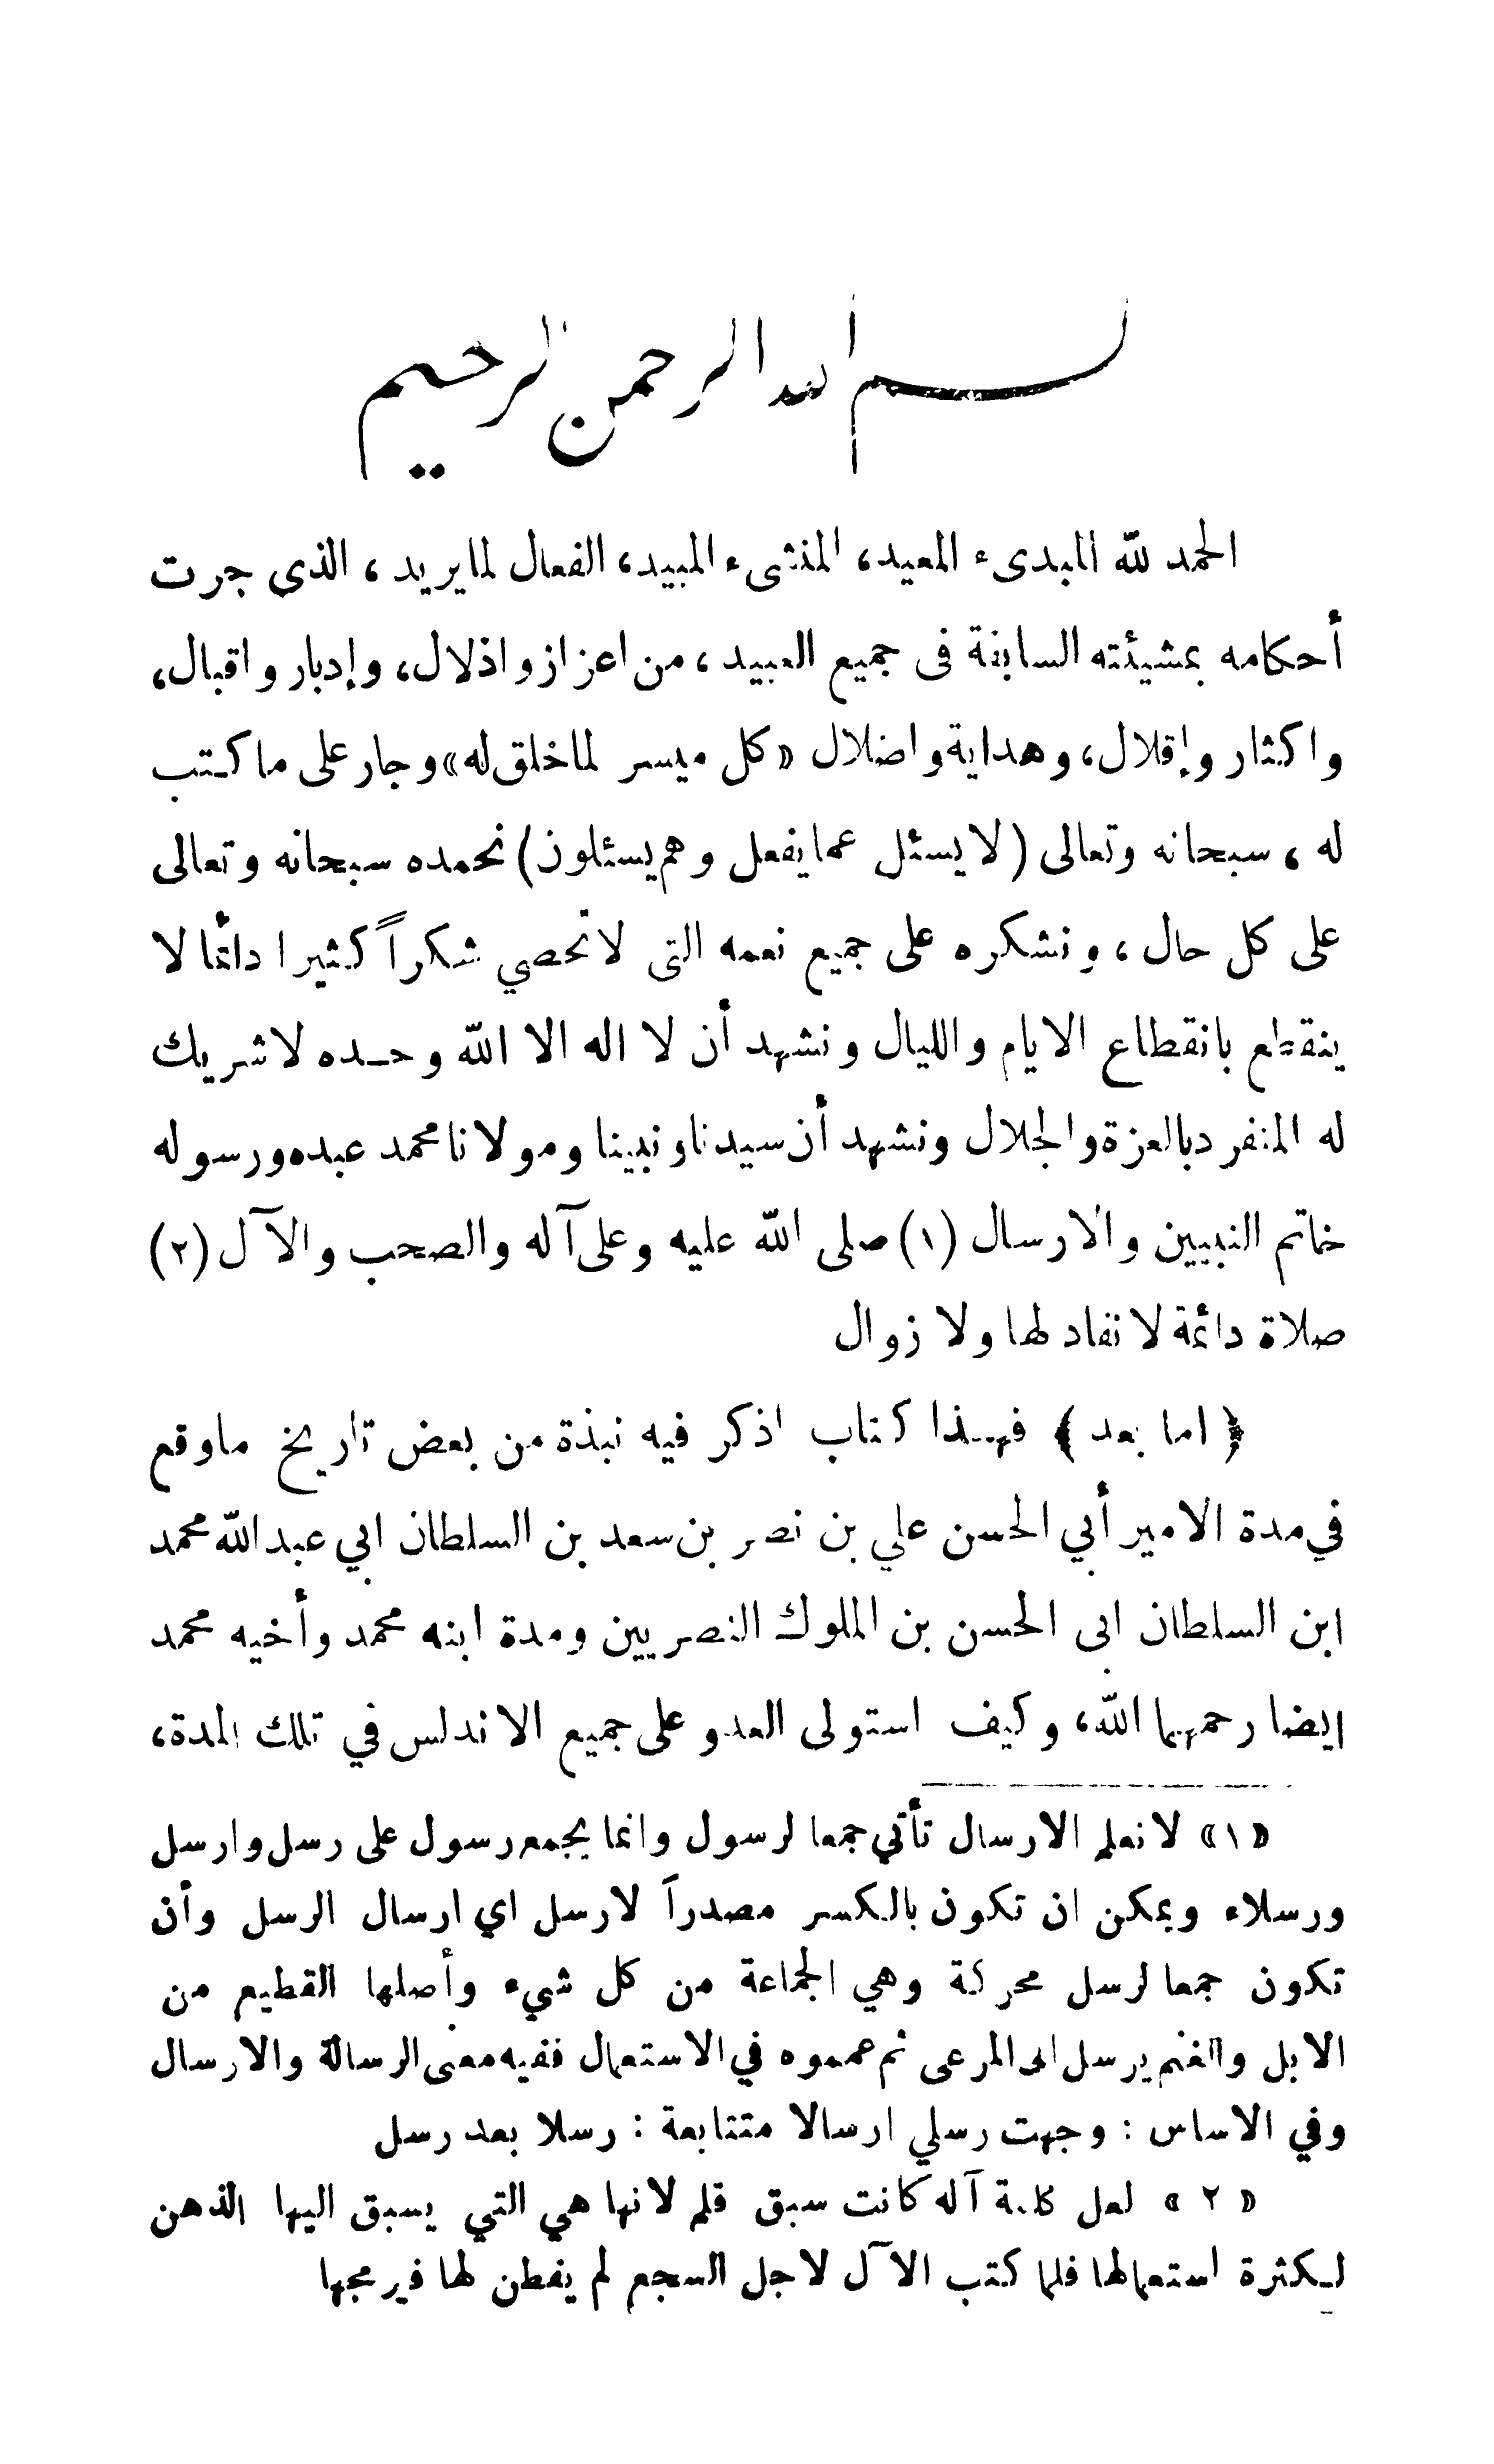 بسم الله الرحمن الرحيم
الحمد لله المبدىء المعيد، المنشىء المبيد، الفعال لما يريد، الذي جرت
أحكامه بمشيئته السابقة في جميع العبيد، من اعزاز واذلال، وإدبار واقبال،
واكثار وإقلال، وهداية واضلال «كل ميسر لما خلق له» وجار على ما كتب
له، سبحانه وتعالى (لا يسئل عما يفعل وهم يسئلون) نحمده سبحانه وتعالى
على كل حال، ونشكره على جميع نعمه التي لا تحصي شكراً كثيرا دائما لا
ينقطع بانقطاع الايام والليال ونشهد أن لا اله الا الله وحده لا شريك
له المنفرد بالعزة والجلال ونشهد أن سيدنا ونبينا ومولانا محمد عبده ورسوله
خاتم النبيين والارسال (١) صلى الله عليه وعلى آله والصحب والآل (٢)
صلاة دائمة لا نفاد لها ولا زوال
﴿ اما بعد ﴾ فهذا كتاب اذكر فيه نبذة من بعض تاريخ ما وقع
في مدة الامير أبي الحسن علي بن نصر بن سعد بن السلطان ابي عبد الله محمد
ابن السلطان ابى الحسن بن الملوك النصريين ومدة ابنه محمد وأخيه محمد
ايضا رحمهما الله، وكيف استولى العدو على جميع الاندلس في تلك المدة،
«١» لا نعلم الارسال تأتي جمعا لرسول وانما يجمع رسول على رسل وارسل
ورسلاء ويمكن ان تكون بالكسر مصدراً لارسل اي ارسال الرسل وأن
تكون جمعا لرسل محركة وهي الجماعة من كل شيء وأصلها القطيع من
الابل والغنم يرسل الى المرعى ثم عمموه في الاستعمال ففيه معنى الرسالة والارسال
وفي الاساس : وجهت رسلي ارسالا متتابعة : رسلا بعد رسل
«٢» لعل كلمة آله كانت سبق قلم لانها هي التي يسبق اليها الذهن
لكثرة استعمالها فلما كتب الآل لاجل السجع لم يفطن لها فيرمجها